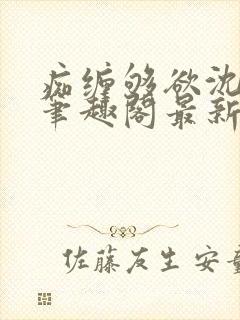 痴缠够欲沈
笔趣阁最新
佐藤友生 安